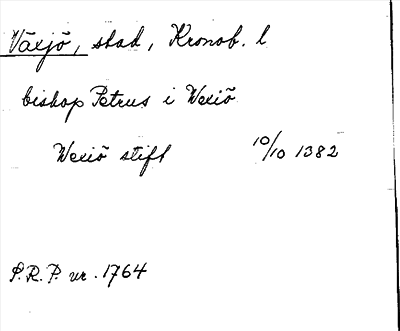 Växjö, stad, Kronob. l
biskop Petrus i Wexiö
Wexiö stift 10/10 1382
S.R.P. nr. 1764